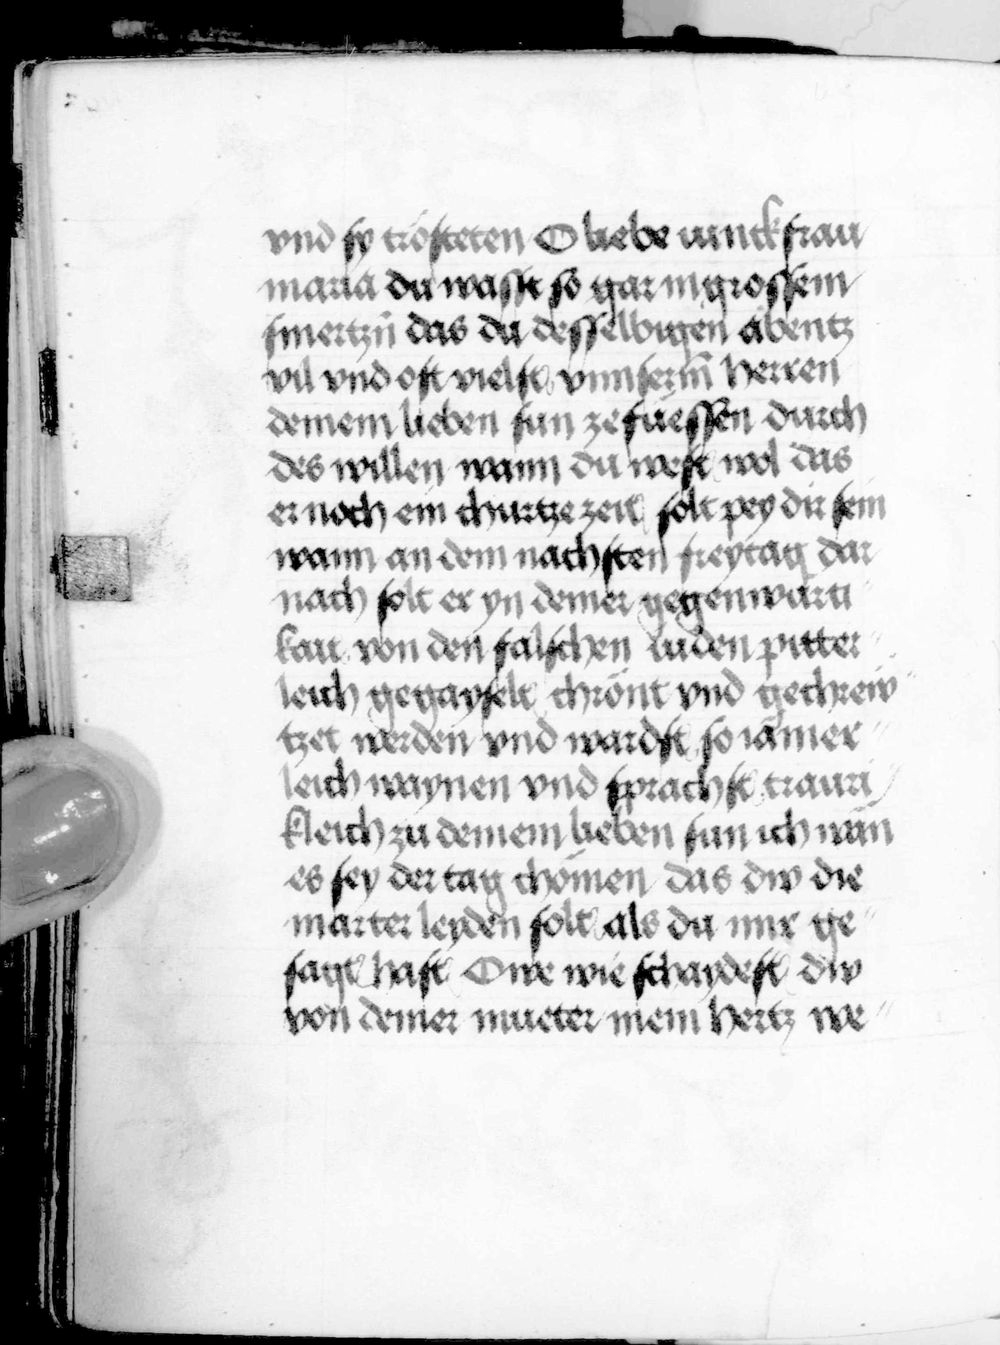 vnd sy trösteten O liebe iunckfrau
maria du wasst so gar in grossem
smertzn̄ das du desselbigen abentz
vil vnd oft vielst vnnserm̄ herren
deinem lieben sun ze füessen durch
des willen wann du west wol das
er noch ein churtze zeit solt pey dir sein
wann an dem nachsten freytag dar
nach solt er yn deiner gegenwürti
kait von den falschen iuden pitter
leich gegayselt chrönt vnd gechrew
tzet werden vnd wardst so iämer
leich waynen vnd sprachst trauri
kleich zu deinem lieben sun ich wän
es sey der tag chömen das dw die
marter leyden solt als du mir ge
sagt hast Owe wie schaydest dw
von deiner mueter mein hertz we